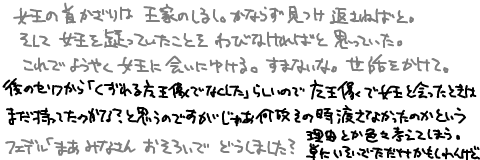 女王の首かざりは 王家のしるし。かならず見つけ 返さねばと。
そして 女王を疑っていたことを わびなければと 思っていた。
これでようやく女王に会いにゆける。すまないな。世話をかけて。
後のセリフから「くずれる左王像でなくした」らしいので 左王像で女王と会ったときは
まだ持ってたのかな？と思うのですがじゃあ何故その時渡さなかったのかという
理由とか色々考えてしまう。
フェデル「まあ みなさん おそろいで どうしました？
単にいろいろでただけかもしれんけど